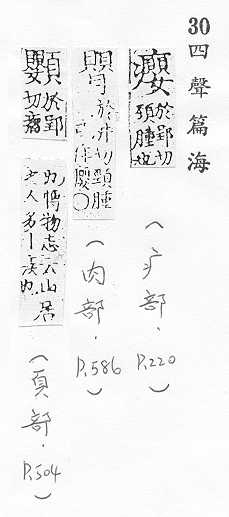 30四聲篇海
癭於郢切
頸腫也
(疒部.P.220)
於井切頸腫
亦作癭○
(肉部.P.586)
於郢
切瘤
也博物志云山居
之人多丨疾也
(頁部.P.504)